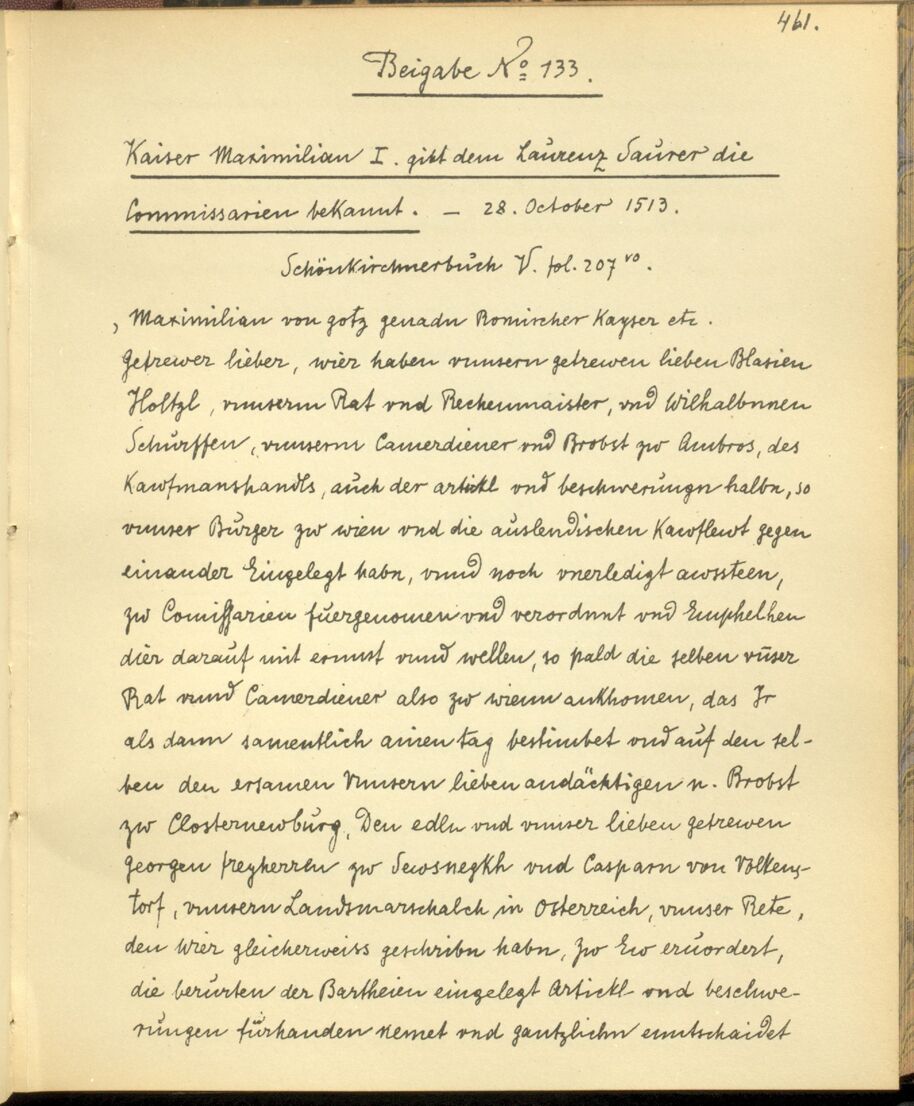 461.
Beigabe No 133.
Kaiser Maximilian I. gibt dem Laurenz Saurer die
Commissarien bekannt. — 28. October 1513.
Schönkirchnerbuch V. fol. 207 vo.
„Maximilian von gotz genadn Romischer Kayser etc.
Getrewer lieber, wier haben vnnsern getrewen lieben Blasien
Holtzl, vnnserm Rat vnd Rechenmaister, vnd Wilhalbmnen
Schurffen, vnnserm Camerdiener vnd Brobst zw Ambros, des
Kawfmanshandls, auch der artickl vnd beschwerungn halbn, so
vnnser Burger zw wien vnd die auslendischen Kawflewt gegen
einander Eingelegt habn, vnnd noch vnerledigt awssteen,
zw Comissarien fuergenomen vnd verordnnt vnd Emphelhen
dier darauf mit ernnst vnnd wellen, so pald die selben vnser
Rat vnnd Camerdiener also zw wienn ankhomen, das Ir
als dann samentlich ainen tag bestimbet vnd auf den sel-
ben den ersamen Vnnsern lieben andächtigen n. Brobst
zw Closternewburg, Den edln vnd vnnser lieben getrewen
Georgen freyherren zw Sewsnegkh vnd Casparn von Volkens-
torf, vnnsern Landsmarschalch in Osterreich, vnnser Rete,
den wier gleicherweiss geschribn habn, zw Ew eruordert,
die berurten der Bartheien eingelegt Artickl vnd beschwe-
rungen fürhanden nemet vnd gantzlichn enntschaidet